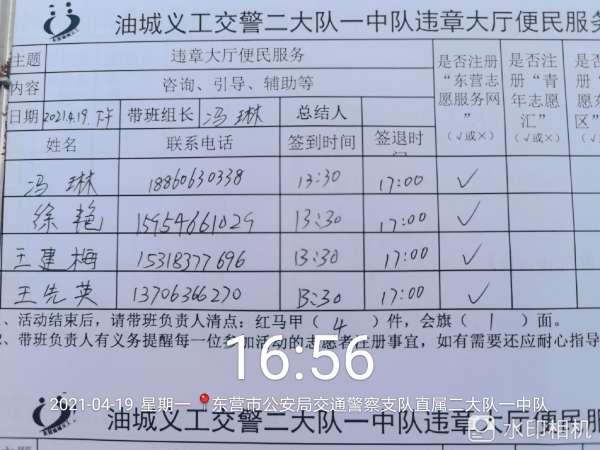 油城义工交警二大队一中队违章大厅便民服务
主题 违章大厅便民服务 是否注册“东营志愿服务网”（√或×） 是否注册“青年志愿汇”（√或×） 是否注
内容 咨询、引导、辅助等
日期 2021.4.19.下午 带班组长 冯琳 总结人
姓名 联系电话 签到时间 签退时间
冯琳 18860630338 13:30 17:00 √
徐艳 15954661029 13:30 17:00 √
王建梅 15318377696 13:30 17:00 √
王先英 13706366270 13:30 17:00 √
、活动结束后，请带班负责人清点：红马甲（ 4 ）件，会旗（ 1 ）面。
、带班负责人有义务提醒每一位参加活动的志愿者注册事宜，如有需要还应耐心指导
16:56
2021-04-19 星期一 东营市公安局交通警察支队直属二大队一中队
油城义工交警二大队一中队违章大厅便民服
水印相机